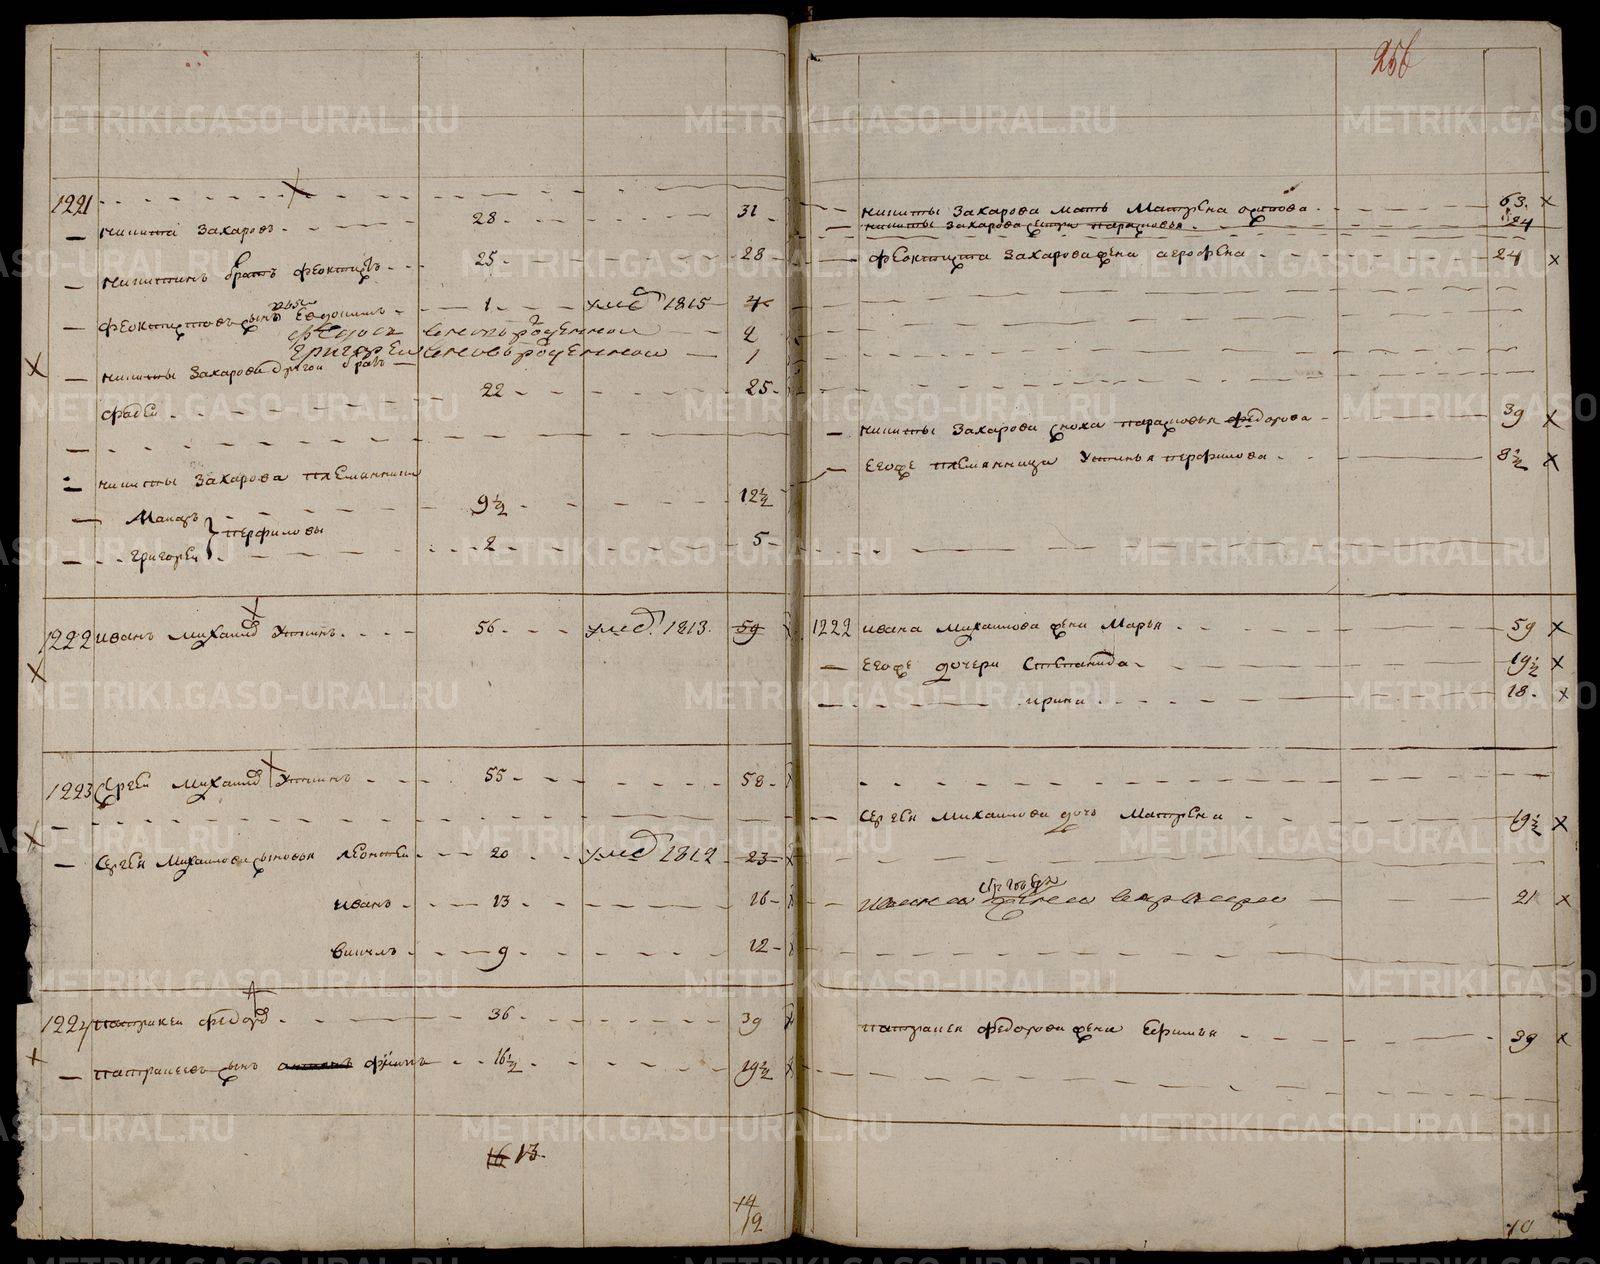 256
1221
Никита Захаровъ 28 31
Никитинъ братъ Феоктистъ 25 28
Феоктистовъ сынъ Евдокимъ 1 умеръ 1815 4
Федосъ вновь рожденной 2
Григорей вновь рожденной 1
Никиты Захарова другой братъ
Фадей 22 25
Никиты Захарова племянники
Макаръ 9½ 12½
Перфиловы
Григорей 2 5
1222 Иванъ Михайловъ Устинъ 56 умер. 1813. 59
1223 Сергей Михайловъ Устинъ 55 58
Сергея Михайлова сыновья Леонтей 20 умер 1812 23
Иванъ 13 16
Викулъ 9 12
1224 Патракей Федоровъ 36 39
Патракеевъ сынъ Филипъ 16½ 19½
16 13
14
12
Никиты Захарова мать Матрена Осипова 63
Никиты Захарова сестра Парасковья 24
Феоктиста Захарова жена Агрофена 24
Никиты Захарова сноха Парасковья Федорова 39
Его же племянница Устинья Перфилова 8½
1222 Ивана Михайлова жена Марья 59
Его же дочери Степанида 19½
Ирина 18
Сергея Михайлова дочь Матрена 19½
Ивана жена 21
Патракея Федорова жена Ефимья 39
10
METRIKI.GASO-URAL.RU